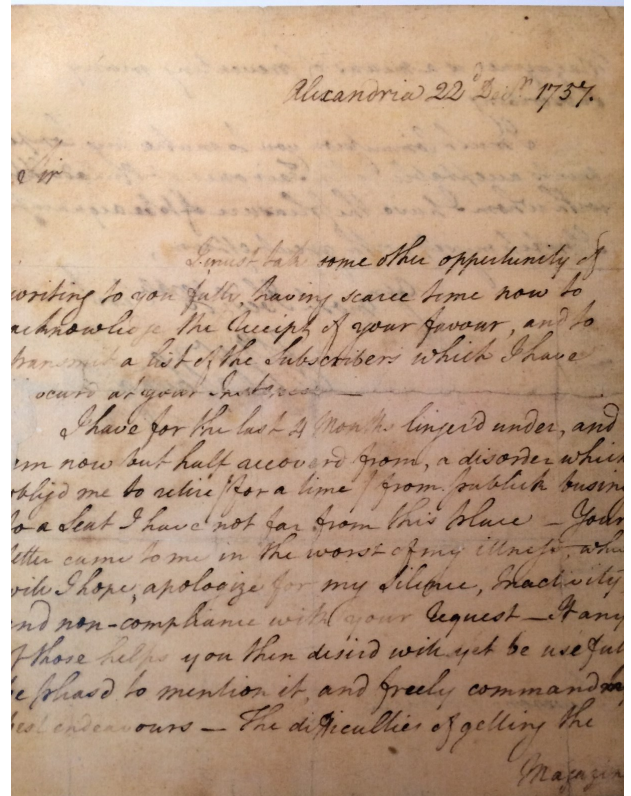 Alexandria 22d Decr 1757.
Sir
I must take some other oppertunity of
writing to you fully, having scarce time now to
acknowledge the Receipt of your favour, and to
transmit a list of the Subscribers which I have
procurd at your Instance —
I have for the last 4 Months linger'd under, and
am now but half recoverd from, a disorder which
oblig'd me to retire (for a time) from publick busin
to a Seat I have not far from this place — Your
letter came to me in the worst of my illness, whi
will I hope, apologize for my Silence, Inactivity
and non-compliance with your Request — If any
of those helps you then desir'd will yet be useful
be pleas'd to mention it, and freely command my
best endeavours — The difficulties of getting the
Magazin